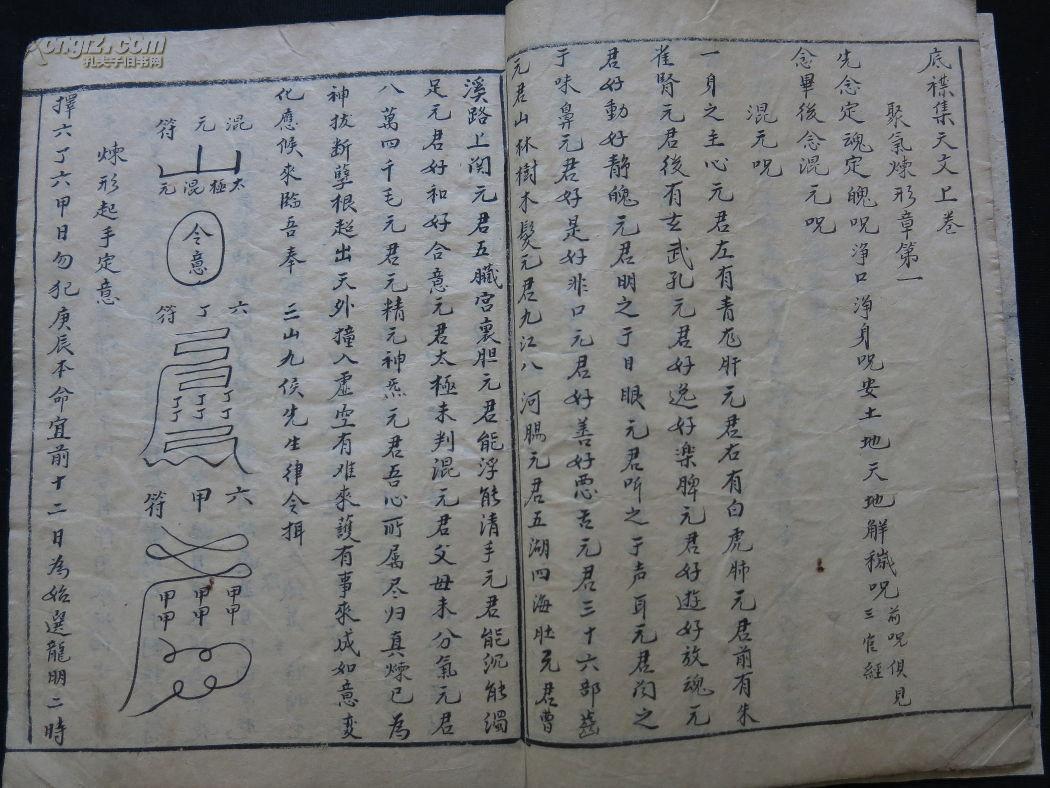 底襟集天文上卷
聚氣煉形章第一
先念定魂定魄呪浄口浄身呪安土地天地解穢呪前呪俱見三官經
念畢後念混元呪
混元呪
一身之主心元君左有青龙肝元君右有白虎肺元君前有朱
雀腎元君後有玄武孔元君好逸好楽脾元君好遊好放魂元
君好動好静魄元君明之于目眼元君听之于声耳元君闻之
于味鼻元君好是好非口元君好善好恶舌元君三十六部齒
元君山林樹木髮元君九江八河腸元君五湖四海肚元君曹
溪路上関元君五臓宫裏胆元君能浮能清手元君能沉能濁
足元君好和好合意元君太極未判混元君父母未分氣元君
八萬四千毛元君元精元神炁元君吾心所属尽归真煉已為
神拔断孽根超出天外撞入虚空有难來護有事來成如意变
化應候來臨吾奉 三山九侯先生律令揖
混元符
太極混元
令意
六丁符
丁丁 丁丁 丁丁
六甲符
甲甲 甲甲 甲甲
煉形起手定意
擇六丁六甲日勿犯庚辰本命宜前十二日為始選龍明二時
孔夫子旧书网